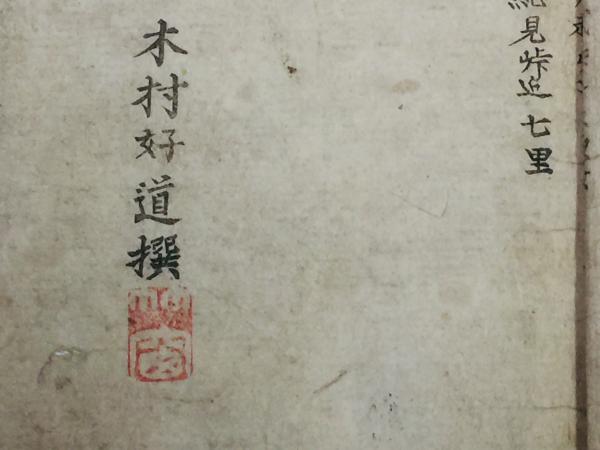 紀見峠迄七里
木村好道撰